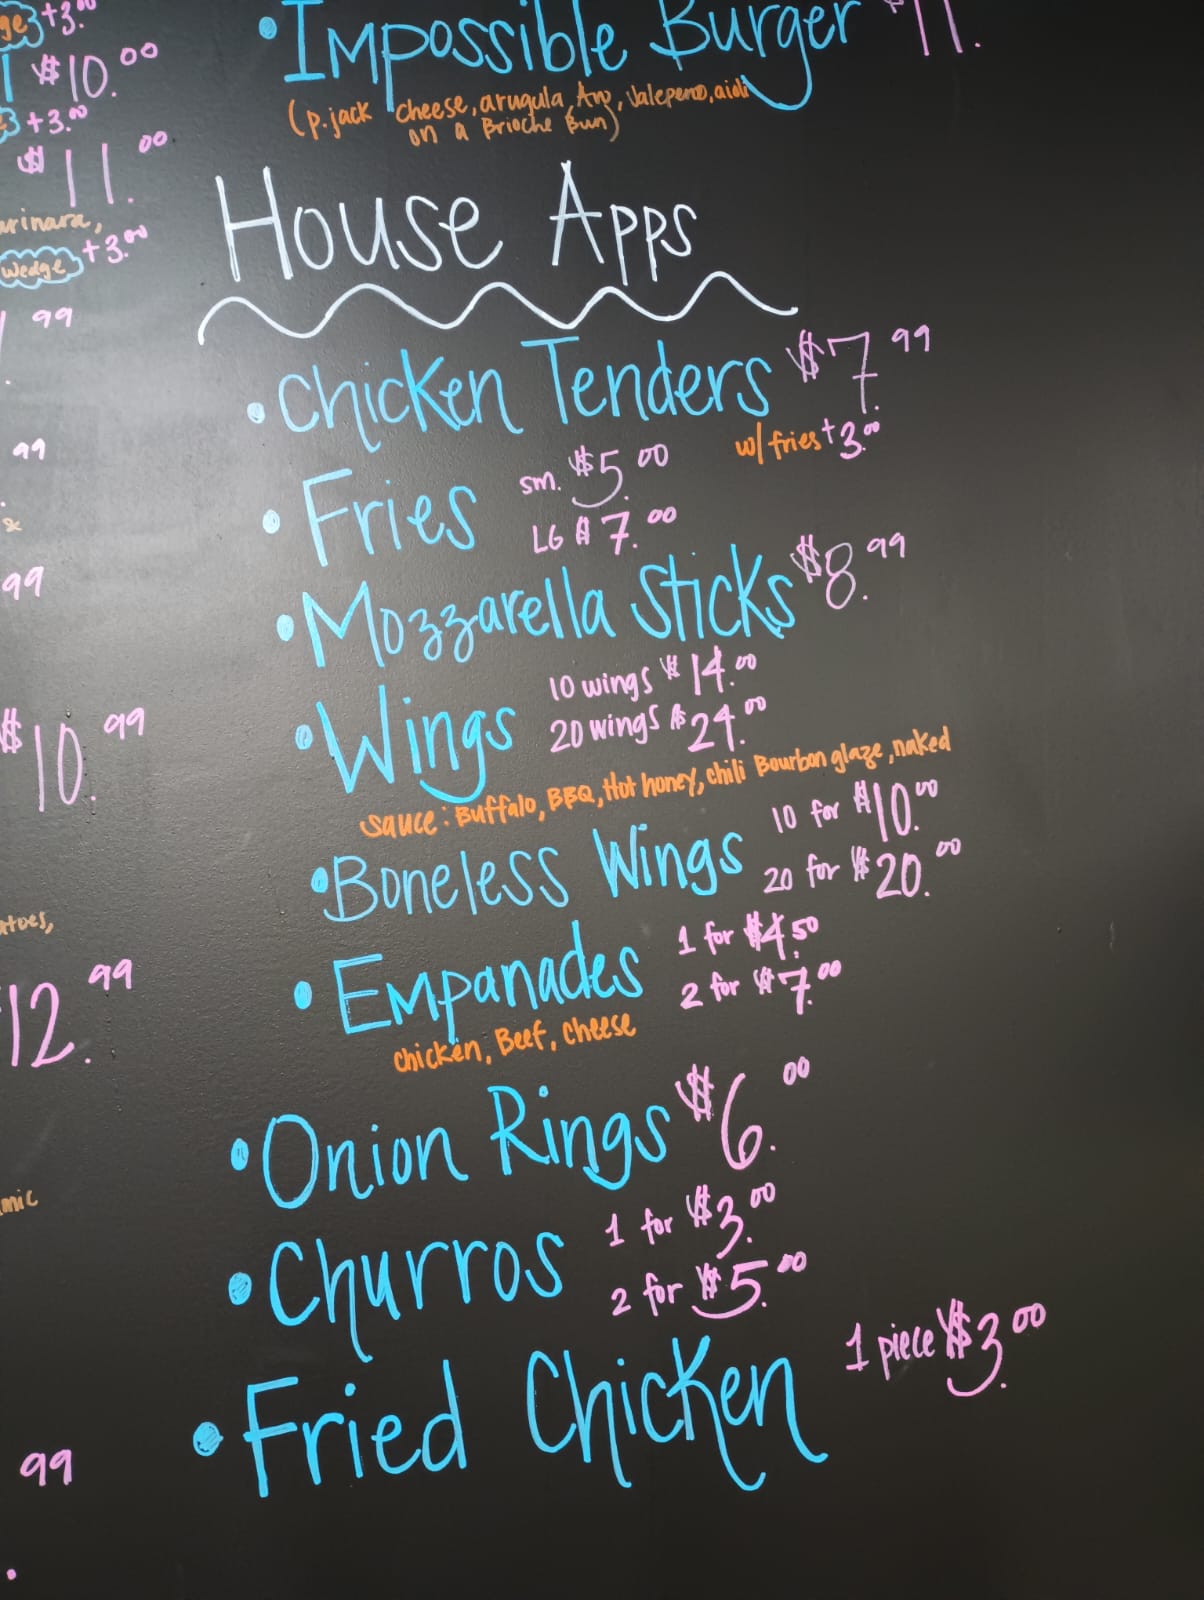 ge +3.00
$10.00
+3.00
$11.00
arinara,
wedge +3.00
99
99
&
99
$10.99
atoes,
12.99
amic
99
• Impossible Burger $11.
(p.jack cheese, arugula, Avo, Jalepeno, aioli
on a Brioche Bun)
House Apps
• Chicken Tenders $7.99
w/ fries +3.00
• Fries sm. $5.00
LG $7.00
• Mozzarella Sticks $8.99
• Wings 10 wings $14.00
20 wings $24.00
sauce: Buffalo, BBQ, Hot honey, chili Bourbon glaze, naked
• Boneless Wings 10 for $10.00
20 for $20.00
• Empanades 1 for $4.50
2 for $7.00
chicken, Beef, cheese
• Onion Rings $6.00
• Churros 1 for $3.00
2 for $5.00
• Fried Chicken 1 piece $3.00